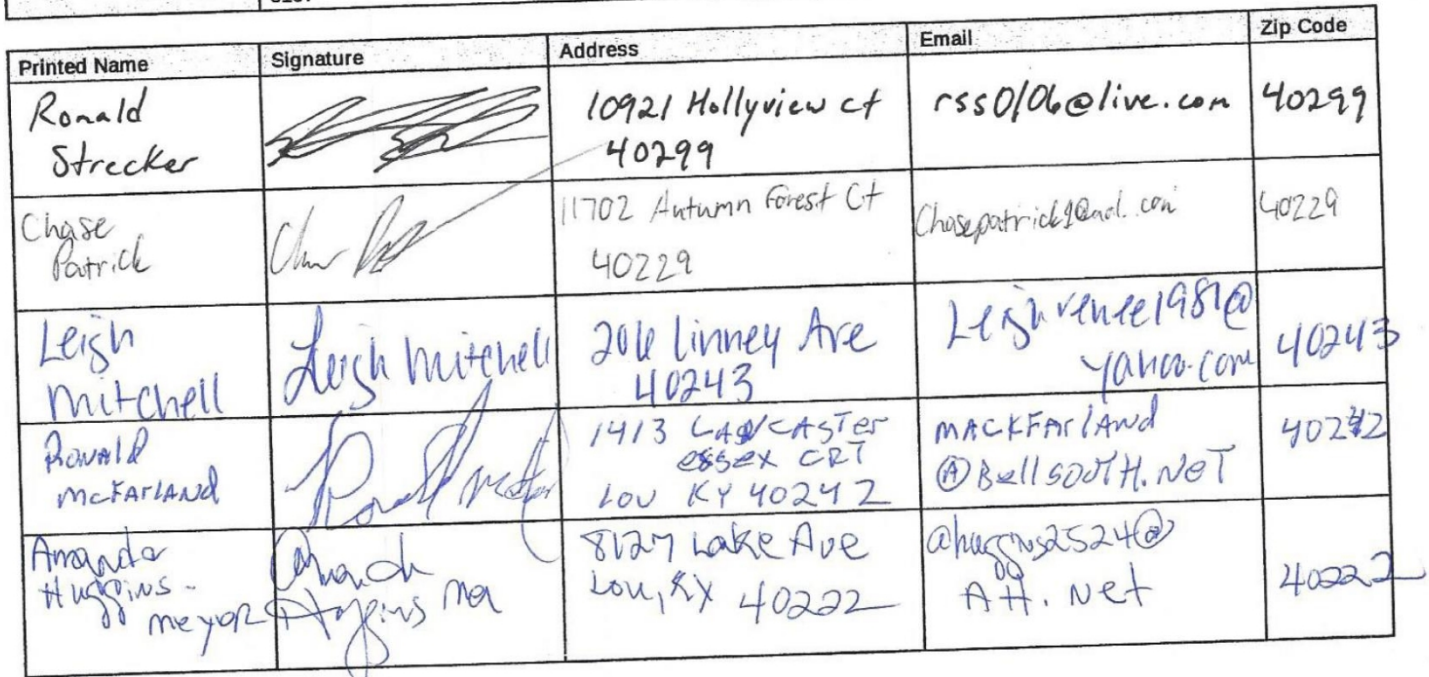 Printed Name Signature Address Email Zip Code
Ronald
Strecker
10921 Hollyview ct
40299
rss0106@live.com
40299
Chase
Patrick
11702 Autumn Forest Ct
40229
Chasepatrick1@aol.com
40229
Leigh
Mitchell
Leigh Mitchell
206 Linney Ave
40243
Leighrenee1981@
yahoo.com
40243
Ronald
McFarland
1413 Lancaster
essex CRT
Lou KY 40242
MACKFArlANd
@BellsouTH.NeT
40242
Amanda
Huggins-
meyor
8127 Lake Ave
Lou, KY 40222
ahuggins2524@
Att.Net
40222